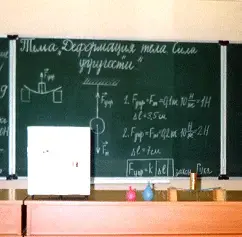 Тема „Деформация тела Сила
упругости"
Fупр
1. Fупр=Fт=0,1кг·10 Н/кг=1Н
Δl=3,5см
2. Fупр=Fт=0,2кг·10 Н/кг=2Н
Δl=7см
Fт
Fупр=k|Δl| закон Гука